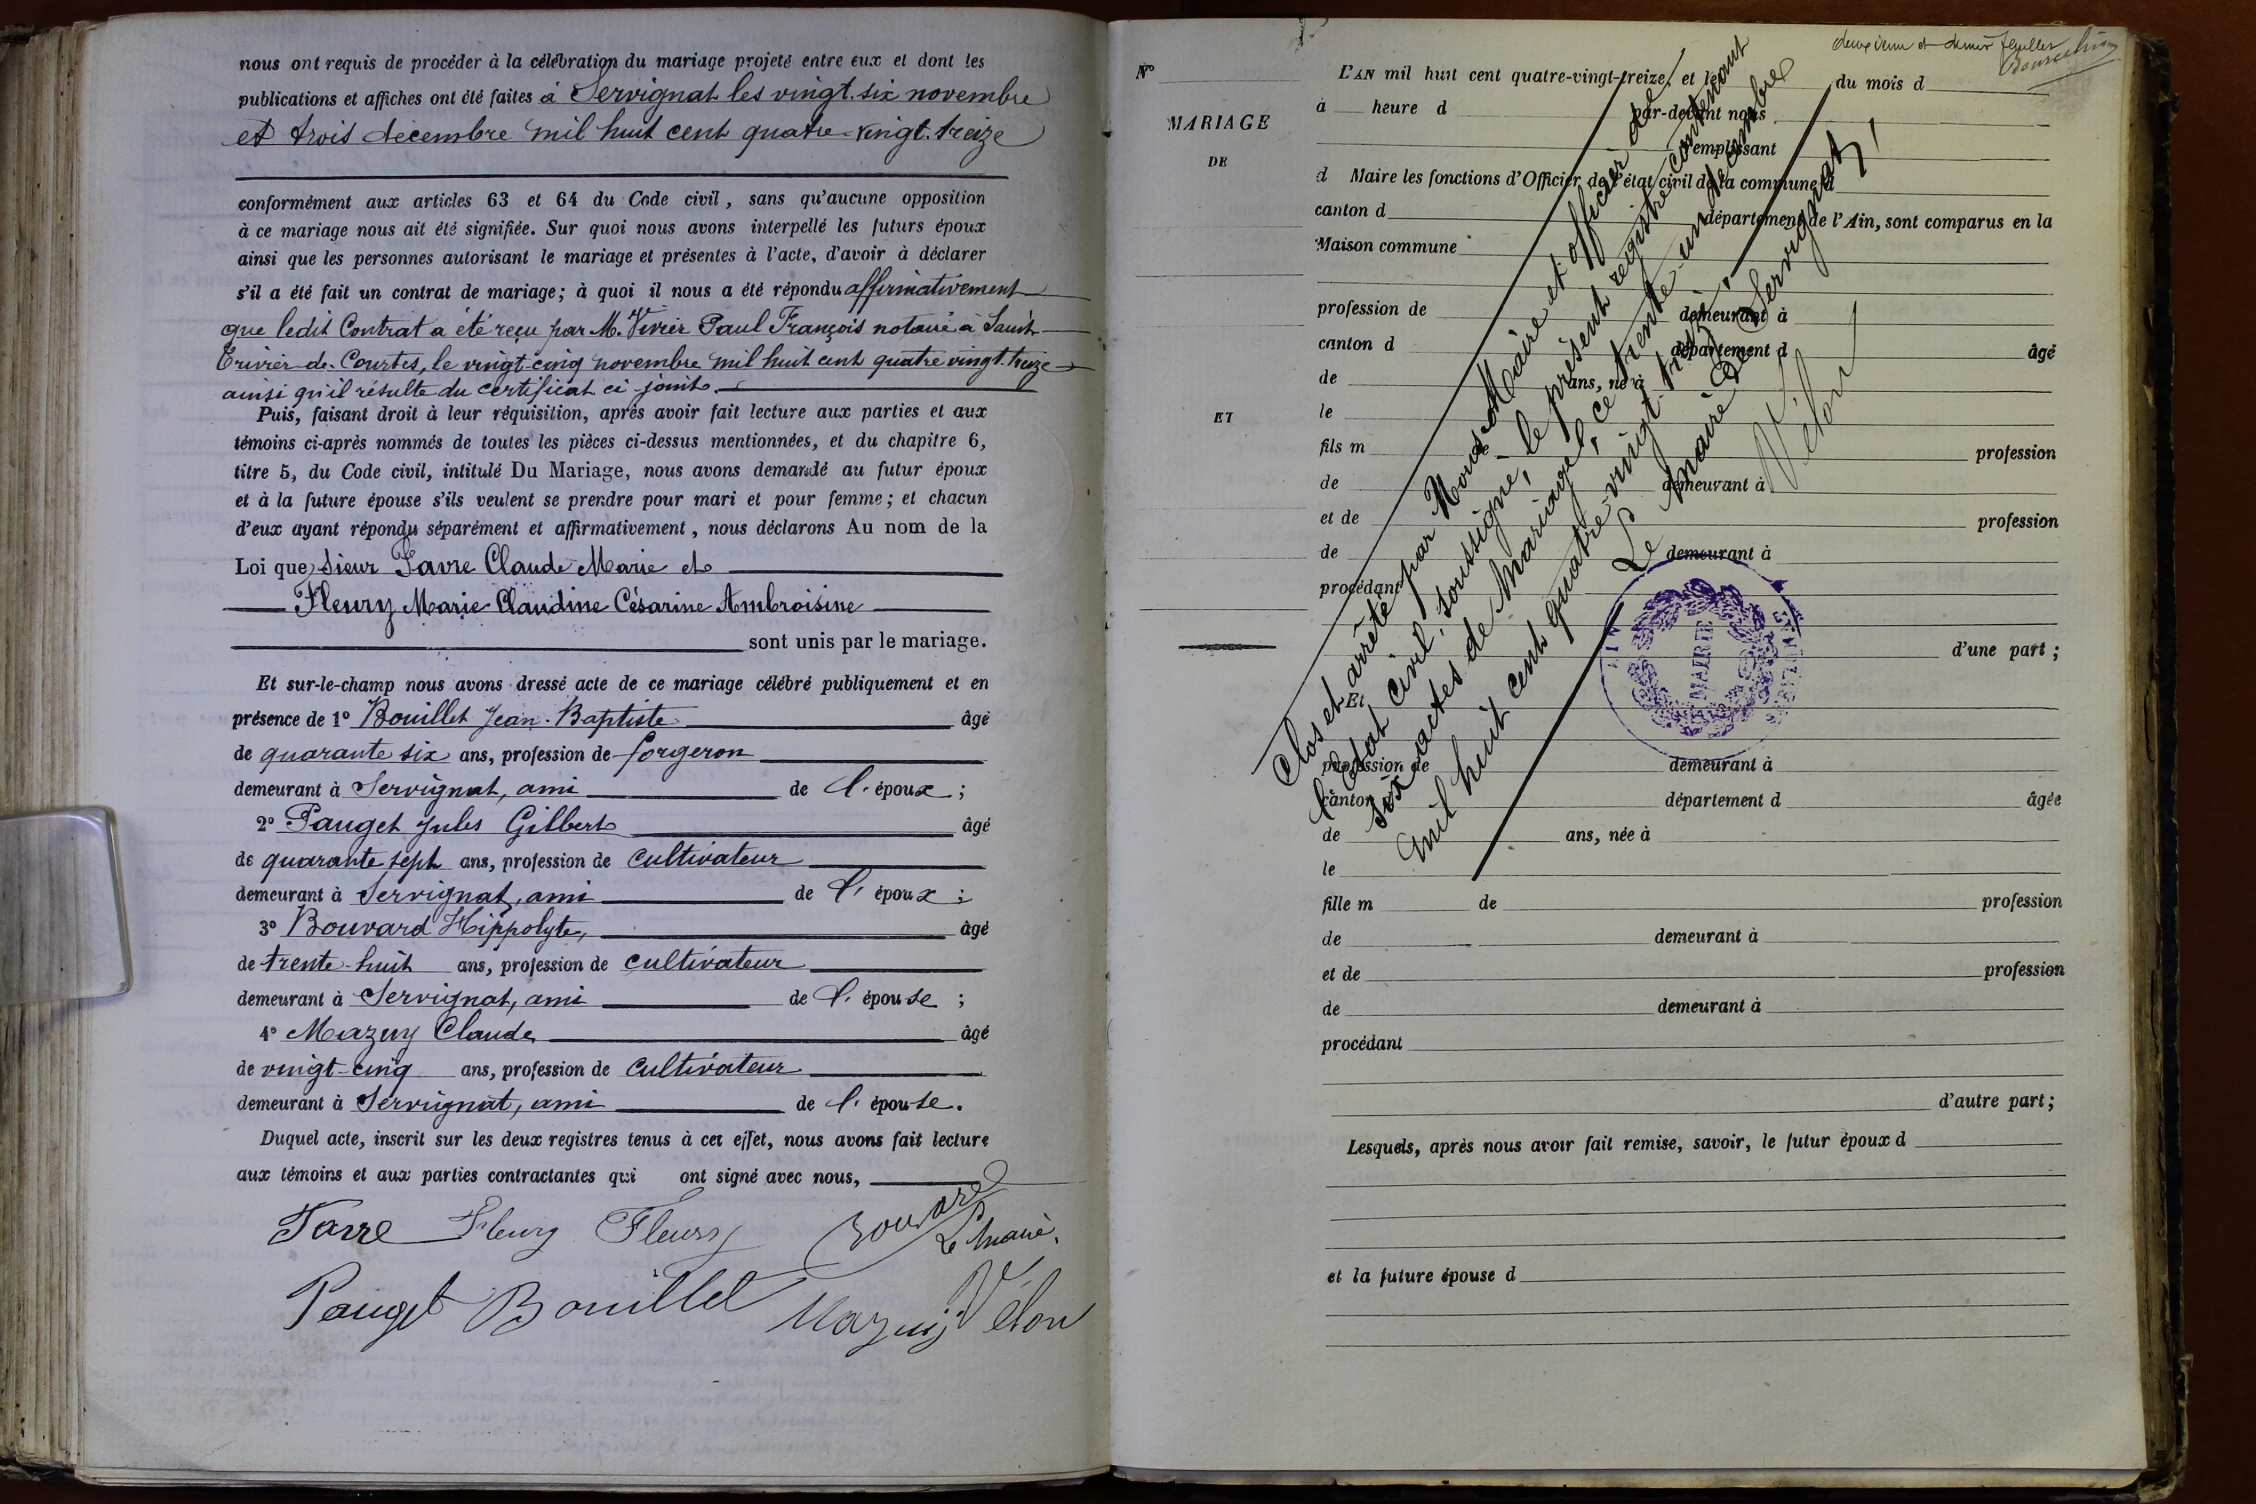 nous ont requis de procéder à la célébration du mariage projeté entre eux et dont les
publications et affiches ont été faites à Servignat les vingt-six novembre
et trois décembre mil huit cent quatre-vingt-treize
conformément aux articles 63 et 64 du Code civil, sans qu'aucune opposition
à ce mariage nous ait été signifiée. Sur quoi nous avons interpellé les futurs époux
ainsi que les personnes autorisant le mariage et présentes à l'acte, d'avoir à déclarer
s'il a été fait un contrat de mariage; à quoi il nous a été répondu affirmativement
que ledit Contrat a été reçu par M. Vivier Paul François notaire à Saint
Trivier-de-Courtes, le vingt-cinq novembre mil huit cent quatre vingt-treize
ainsi qu'il résulte du certificat ci-joint
Puis, faisant droit à leur réquisition, après avoir fait lecture aux parties et aux
témoins ci-après nommés de toutes les pièces ci-dessus mentionnées, et du chapitre 6,
titre 5, du Code civil, intitulé Du Mariage, nous avons demandé au futur époux
et à la future épouse s'ils veulent se prendre pour mari et pour femme; et chacun
d'eux ayant répondu séparément et affirmativement, nous déclarons Au nom de la
Loi que, sieur Favre Claude Marie et
Fleury Marie Claudine Césarine Ambroisine
sont unis par le mariage.
Et sur-le-champ nous avons dressé acte de ce mariage célébré publiquement et en
présence de 1° Bouillet Jean-Baptiste âgé
de quarante six ans, profession de forgeron
demeurant à Servignat, ami de l'époux;
2° Pauget Jules Gilbert âgé
de quarante sept ans, profession de cultivateur
demeurant à Servignat, ami de l'époux;
3° Bouvard Hippolyte, âgé
de trente-huit ans, profession de cultivateur
demeurant à Servignat, ami de l'épouse;
4° Mazuy Claude âgé
de vingt-cinq ans, profession de cultivateur
demeurant à Servignat, ami de l'épouse.
Duquel acte, inscrit sur les deux registres tenus à cet effet, nous avons fait lecture
aux témoins et aux parties contractantes qui ont signé avec nous,
Favre Fleury Fleury Bouvard
Le Maire,
Pauget Bouillet Mazuy Vélon
deuxième et dernier feuillet
N°
MARIAGE
DE
ET
L'AN mil huit cent quatre-vingt-treize, et le du mois d
à heure d par-devant nous
remplissant
d Maire les fonctions d'Officier de l'état civil de la commune d
canton d département de l'Ain, sont comparus en la
Maison commune
profession de demeurant à
canton d département d âgé
de ans, né à
le
fils m de profession
de demeurant à
et de profession
de demeurant à
procédant
d'une part;
Et
profession de demeurant à
canton département d âgée
de ans, née à
le
fille m de profession
de demeurant à
et de profession
de demeurant à
procédant
d'autre part;
Lesquels, après nous avoir fait remise, savoir, le futur époux d
et la future épouse d
Clos et arrêté par Nous Maire et officier de
l'état civil, soussigné, le présent registre contenant
six actes de Mariage, ce trente-un décembre
mil huit cent quatre-vingt-treize,
Le Maire de Servignat,
Vélon
MAIRIE
AIN